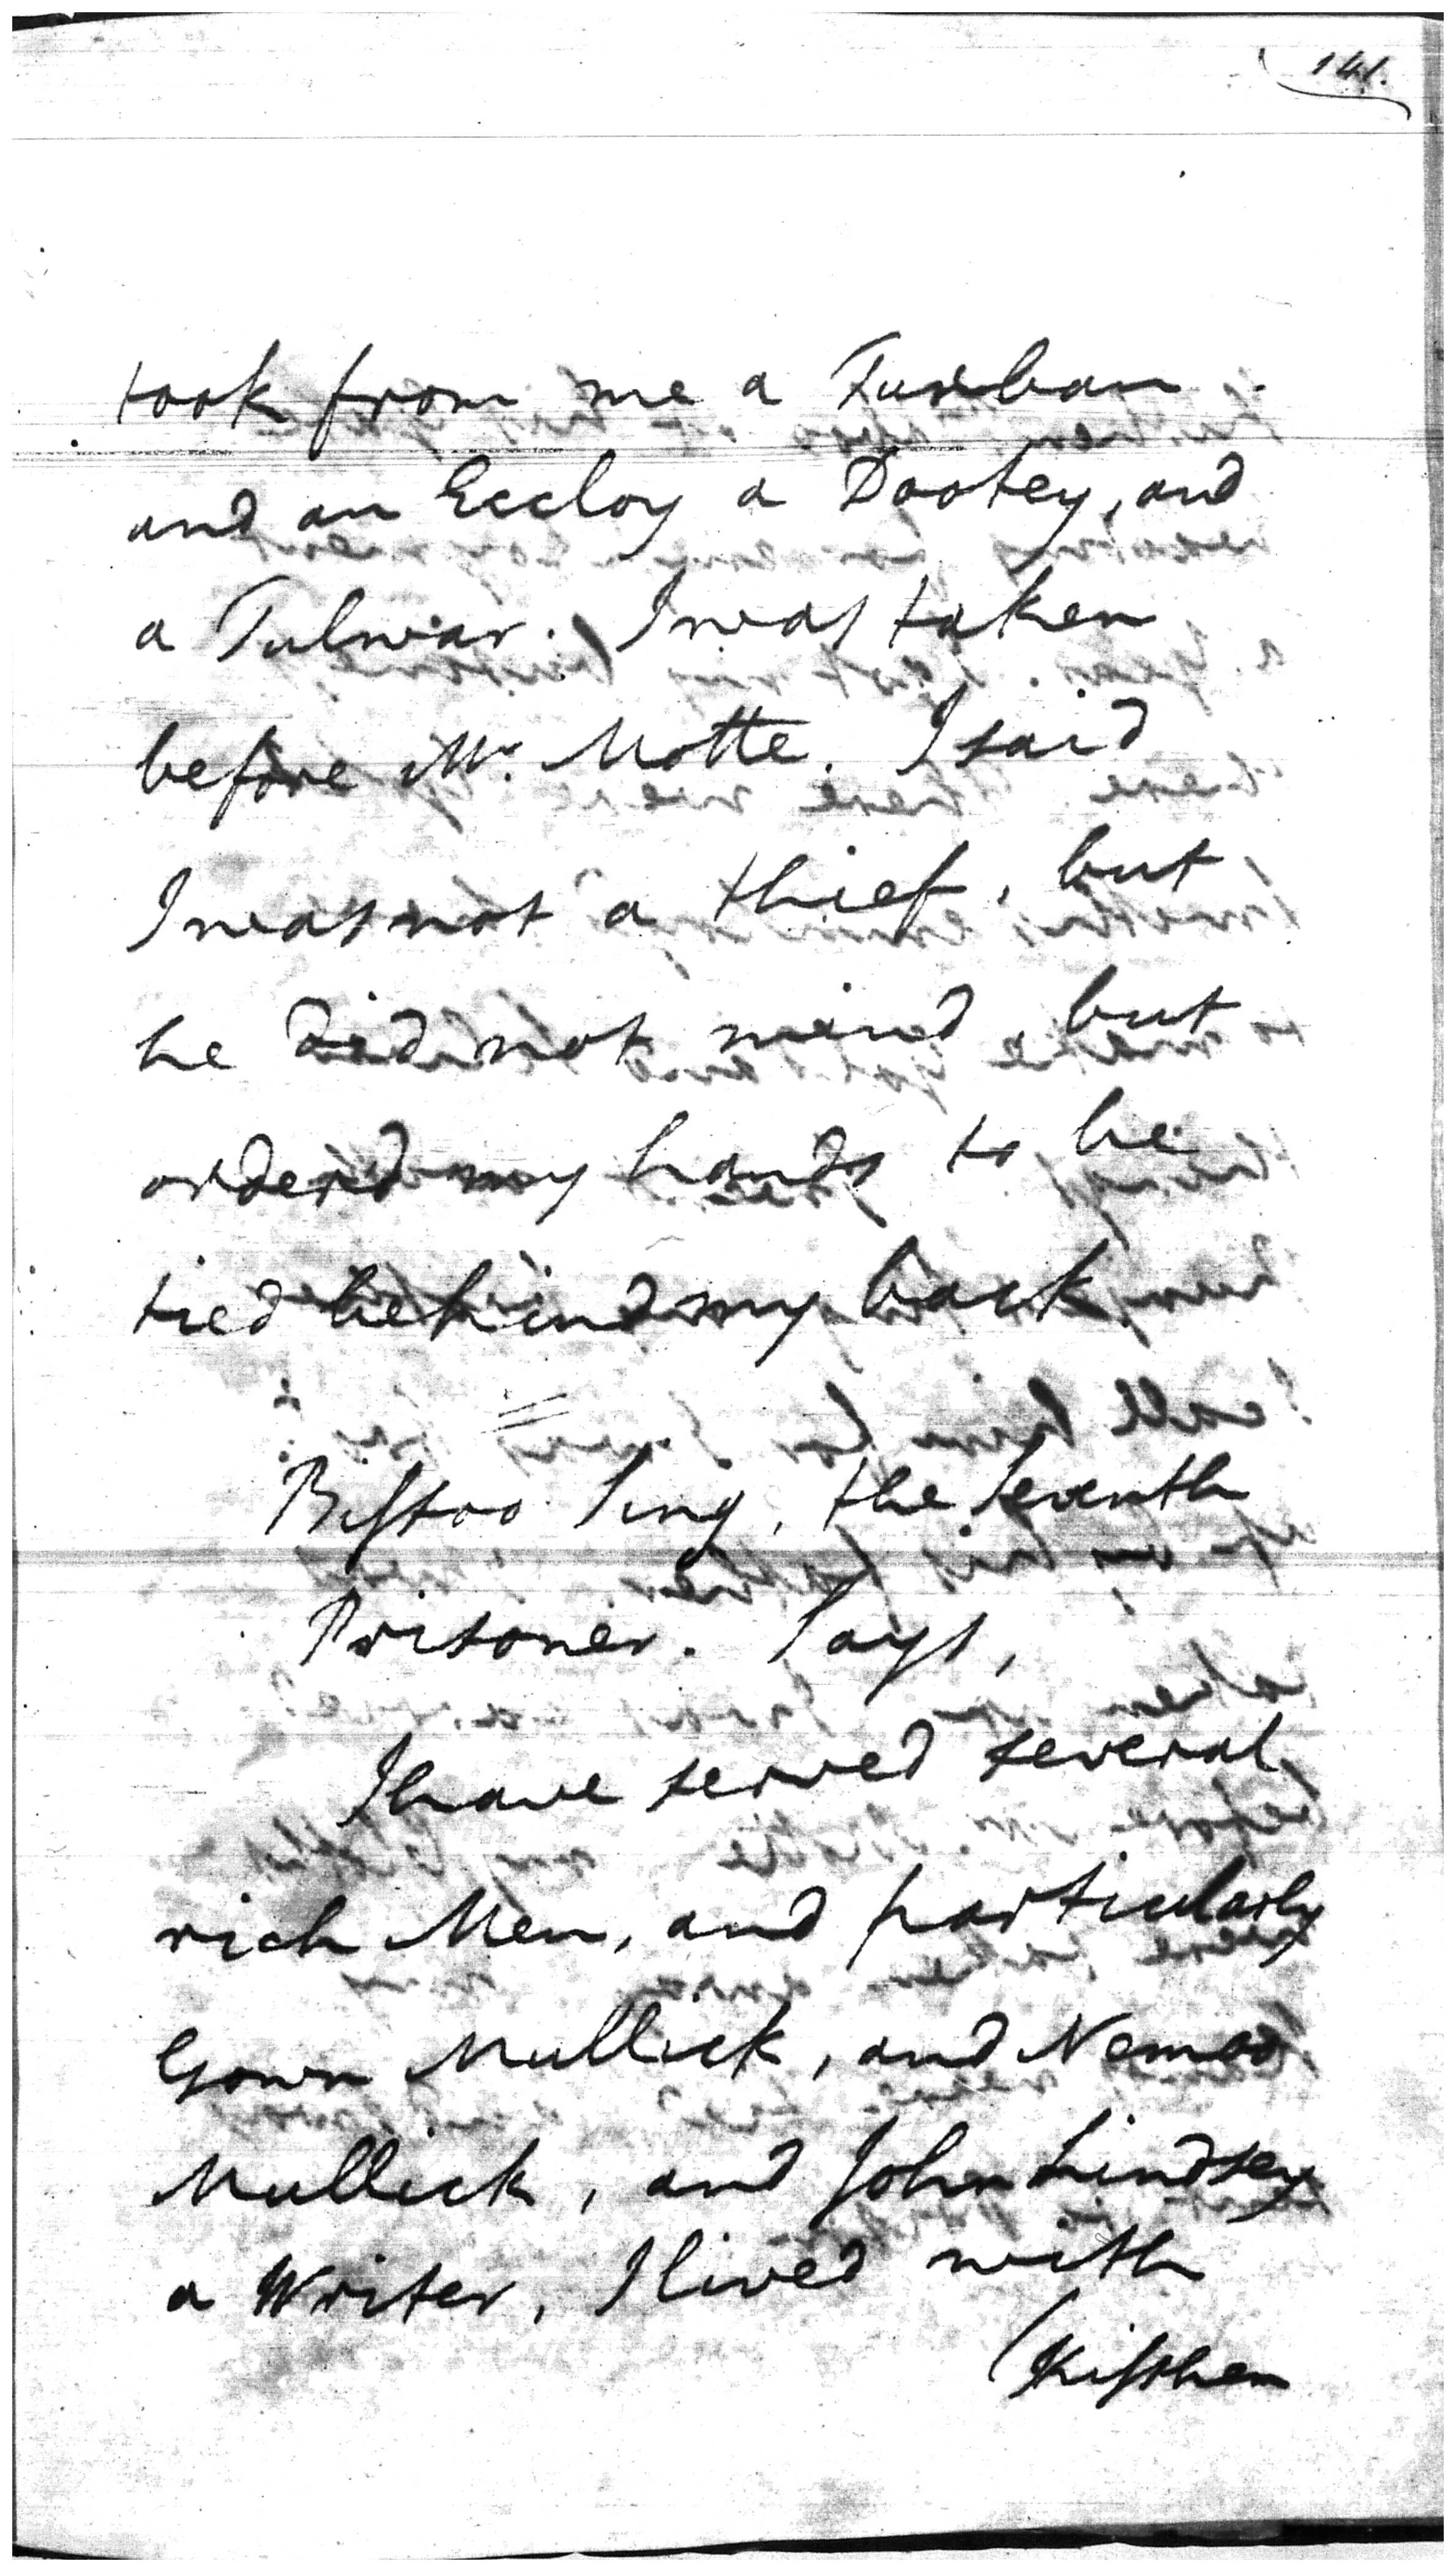 141.
took from me a Turban
and an Eccloy a Dootey, and
a Tulwar. I was taken
before Mr. Motte. I said
I was not a thief, but
he did not mind, but
ordered my hands to be
tied behind my back
Bistoo Sing, the Seventh
Prisoner. Says,
I have served several
rich Men, and particularly
Gowr Mullick, and Nemoo
Mullick, and John Lindsey
a Writer, I lived with
(Kisshen